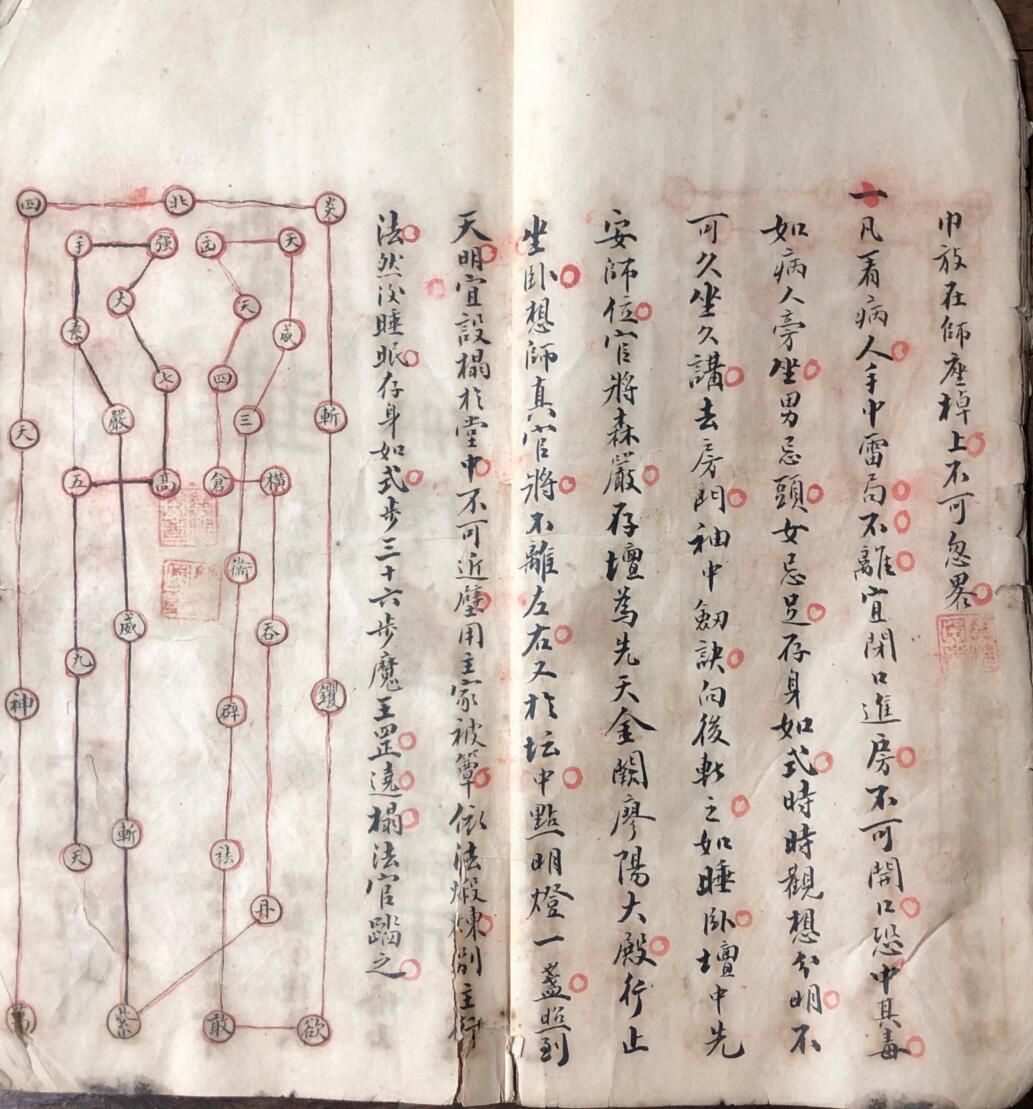 巾放在師座棹上不可忽畧
一凡看病人手中雷局不離宜閉口進房不可開口恐中其毒
如病人旁坐男忌頭女忌足存身如式時時觀想分明不
可久坐久講去房門袖中劔訣向後斬之如睡卧壇中先
安師位官將森嚴存壇為先天金闕廖陽大殿行止
坐卧想師真官將不離左右又於坛中點明燈一盞照到
天明宜設榻於堂中不可近壁用主家被簟依法煅煉
法然後睡眠存身如式步三十六步魔王罡遶榻法官踏之
天
九
五
高
七
大
强
手
素
嚴
威
斬
紫
丹
吞
横
倉
四
天
天
威
三
衛
辟
祛
敢
欲
钁
斬
炎
北
四
天
神
萬